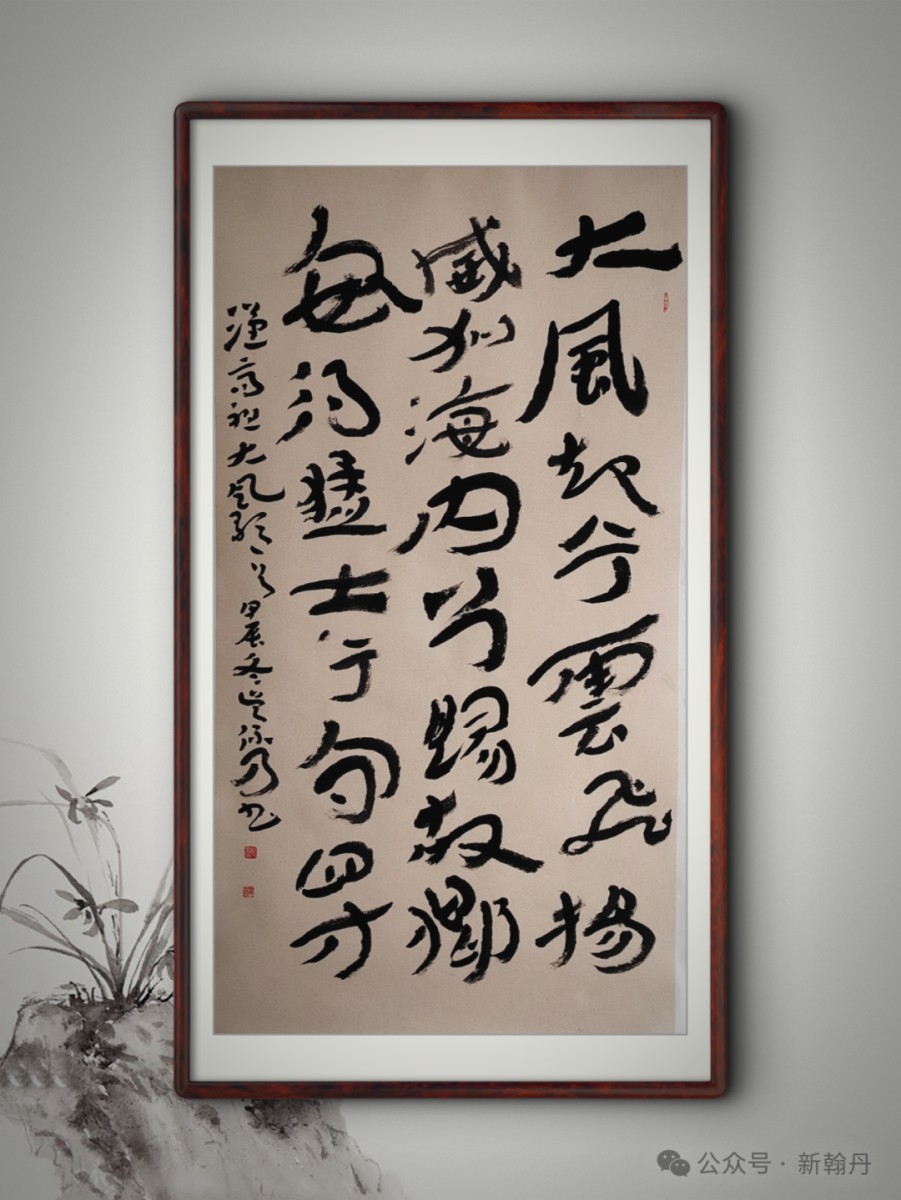 大風起兮雲飛揚
威加海内兮歸故鄉
安得猛士兮守四方
漢高祖大风歌一首甲辰冬书
公众号·新翰丹